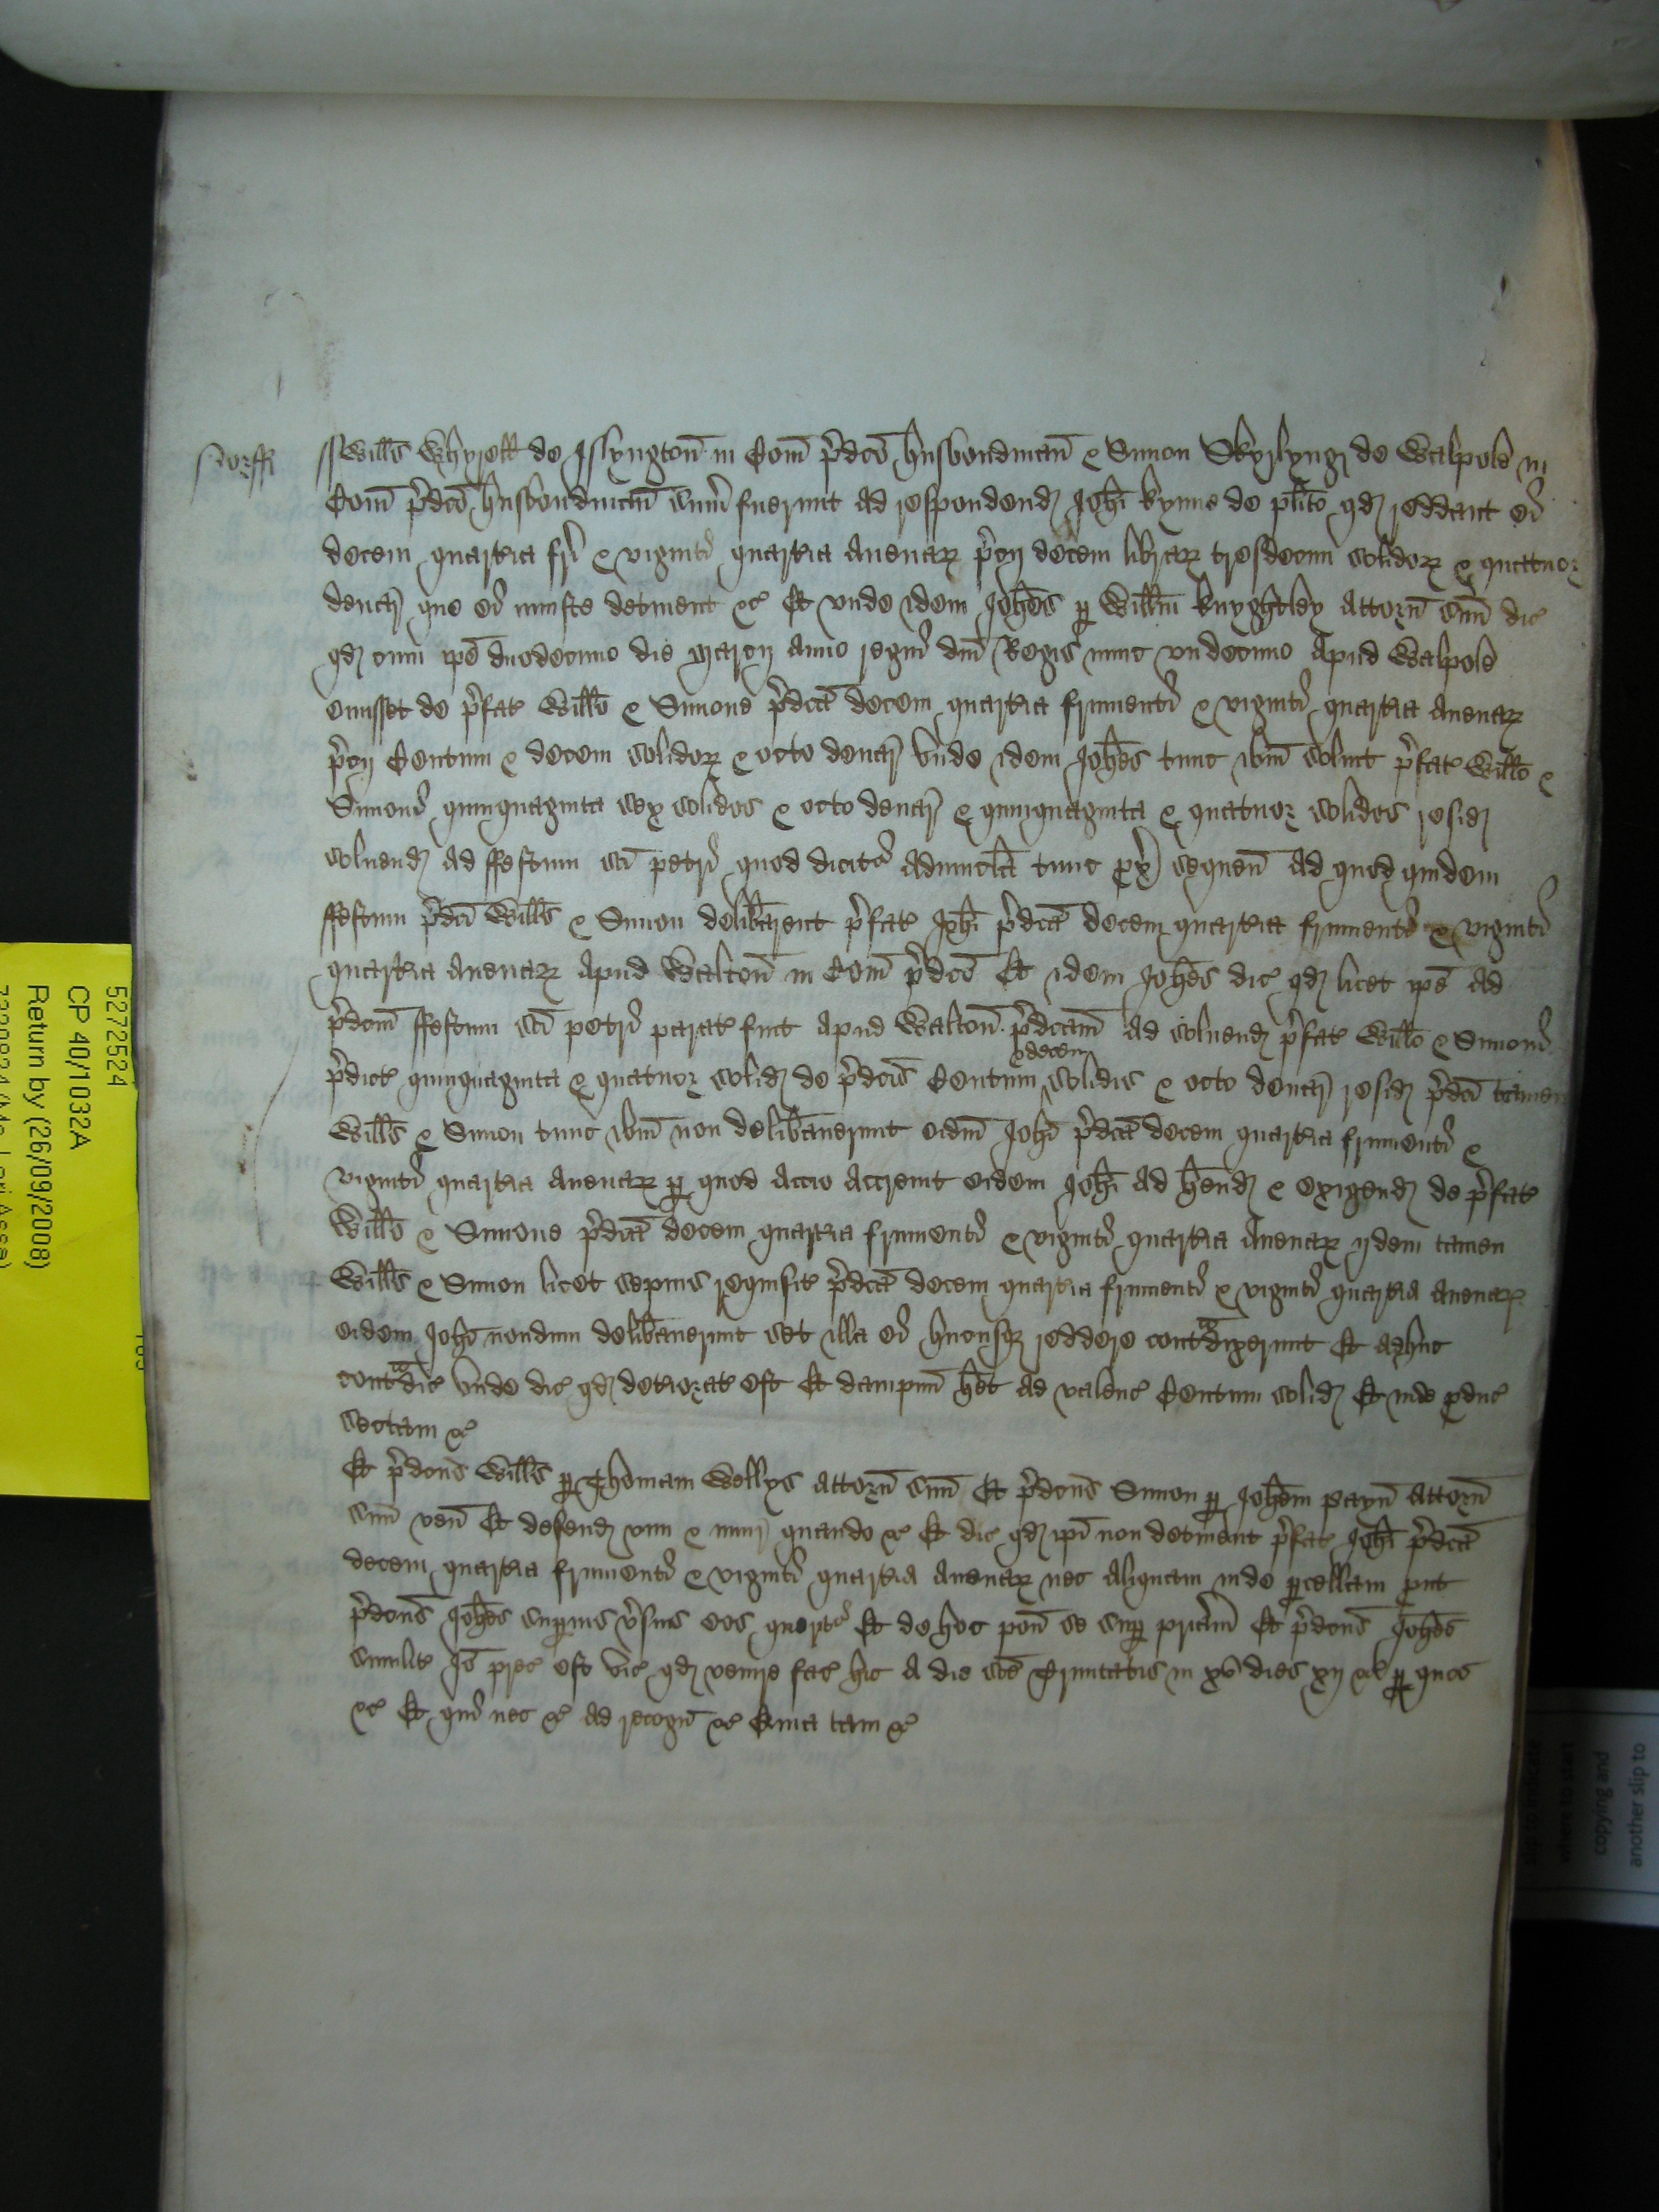 Norff
Wills Whyroll de Islyngton in Com p̄dco husbondman & Simon Skyrlyng de Walpole in
Com p̄dco husbondman sum̄ fuerunt ad respondend Johi Kynne de plito qd reddant ei
decem quarteria fri & viginti quarteria avenar p̄cij decem librar tresdecim solidor & quatuor
denar que ei iniuste detinent &c Et unde idem Johes p Willm Knyghtley attorn suu dic
qd cum ipe duodecimo die Marcij anno regni dni Regis nunc undecimo apud Walpole
emisset de p̄fat Willo & Simone p̄dca decem quarteria frumenti & viginti quarteria avenar
p̄cij Centum & decem solidor & octo denar unde idem Johes tunc ibm soluit p̄fat Willo &
Simoni quinquaginta sex solidos & octo denar & quinquaginta & quatuor solidos resid
soluend ad ffestum sci Petri quod dicitr advincla tunc px sequen ad quod quidem
ffestum p̄dci Wills & Simon delibarent p̄fat Johi p̄dca decem quarteria frumenti & viginti
quarteria avenar apud Walton in Com p̄dco Et idem Johes dic qd licet ipe ad
p̄dcm ffestum sci Petri parat fuit apud Walton p̄dcam ad soluend p̄fat Willo & Simoni
& decem
p̄dict quinquaginta & quatuor solid de p̄dcis Centum solidis & octo denar resid p̄dci tamen
Wills & Simon tunc ibm non delibaverunt eidm Johi p̄dca decem quarteria frumenti &
viginti quarteria avenar p quod accio accrevit eidem Johi ad hend & exigend de p̄fat
Willo & Simone p̄dca decem quarteria frumenti & viginti quarteria avenar ijdem tamen
Wills & Simon licet sepius requisit p̄dca decem quarteria frumenti & viginti quarteria avenar
eidem Johi nondum delibaverunt set illa ei hucusq reddere contadixerunt Et adhuc
contadic unde dic qd deteriorat est Et dampnu het ad valenc Centum solid Et inde pduc
sectam &c
Et p̄dcus Wills p Thomam Wellys attorn suu Et p̄dcus Simon p Johem Payn attorn
suu ven Et defend vim & iniur quando &c Et dic qd ipi non detinent p̄fat Johi p̄dca
decem quarteria frumenti & viginti quarteria avenar nec aliquam inde pcellam put
p̄dcus Johes supius vsus eos queritr Et de hoc pon se sup priam Et p̄dcus Johes
similit Io prec est vic qd venire fac hic a die sce Trinitatis in xv dies xij &c p quos
&c Et qui nec &c ad recogn &c Quia tam &c
5272524
CP 40/1032A
Return by (26/09/2008)
copying and
another slip to